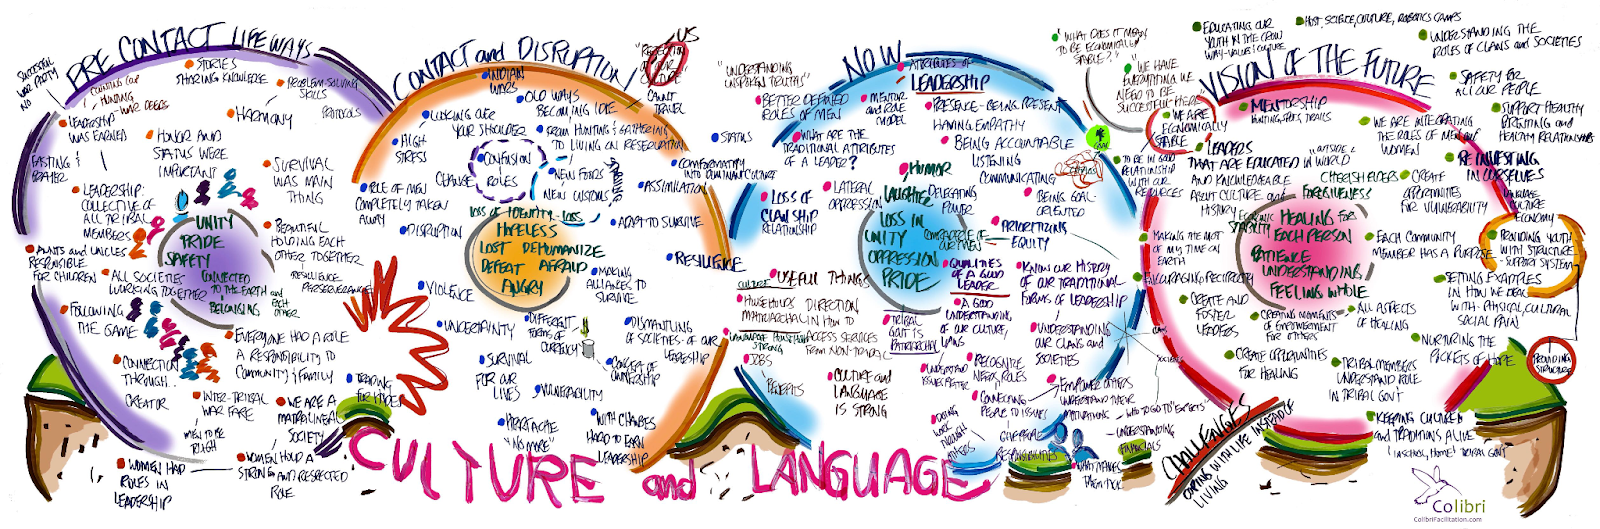 PRE CONTACT LIFEWAYS
SUCCESSFUL
WAR PARTY
NO
STORIES
SHARING KNOWLEDGE
PROBLEM-SOLVING
SKILLS
PROTOCOLS
COUNTING COUP
HUNTING
WAR DEEDS
LEADERSHIP
WAS EARNED
HARMONY
HONOR AND
STATUS WERE
IMPORTANT
FASTING &
PRAYER
SURVIVAL
WAS MAIN
THING
LEADERSHIP:
COLLECTIVE OF
ALL TRIBAL
MEMBERS
UNITY
PRIDE
SAFETY
CONNECTED
TO THE EARTH and
EACH
OTHER
BELONGING
BEAUTIFUL
HOLDING EACH
OTHER TOGETHER
RESILIENCE
PERSEVERANCE
AUNTS and UNCLES
RESPONSIBLE
FOR CHILDREN
ALL SOCIETIES
WORKING TOGETHER
FOLLOWING
THE GAME
EVERYONE HAD A ROLE
A RESPONSIBILITY TO
COMMUNITY & FAMILY
CONNECTION
THROUGH...
CREATOR
INTER-TRIBAL
WAR FARE
MEN TO BE
TOUGH
WE ARE A
MATRILINEAL
SOCIETY
WOMEN HAD
ROLES IN
LEADERSHIP
WOMEN HOLD A
STRONG and RESPECTED
ROLE
TRADING
FOR HIDES
CONTACT and DISRUPTION
US
CAN'T
TRAVEL
INDIAN
WARS
OLD WAYS
BECOMING IDLE
LOOKING OVER
YOUR SHOULDER
FROM HUNTING & GATHERING
TO LIVING ON RESERVATION
HIGH
STRESS
CONFUSION
ROLES
CHANGE
NEW FOODS
NEW CUSTOMS
CONFORMATITY
INTO DOMINANT CULTURE
ASSIMILATION
ROLE OF MEN
COMPLETELY TAKEN
AWAY
DISRUPTION
LOSS OF IDENTITY - LOSS
HOPELESS
LOST DEHUMANIZE
DEFEAT AFRAID
ANGRY
ADAPT TO SURVIVE
RESILIENCE
MAKING
ALLIANCES TO
SURVIVE
VIOLENCE
UNCERTAINTY
DIFFERENT
FORMS OF
CURRENCY
DISMANTLING
OF SOCIETIES - OF OUR
LEADERSHIP
SURVIVAL
FOR OUR
LIVES
VULNERABILITY
CONCEPT OF
OWNERSHIP
"NO MORE"
WITH CHANGES
HARD TO EARN
LEADERSHIP
NOW
"UNDERSTANDING
UNSPOKEN TRUTHS"
ATTRIBUTES OF
LEADERSHIP
BETTER DEFINED
ROLES OF MEN
MENTOR
and ROLE
MODEL
PRESENCE - BEING PRESENT
HAVING EMPATHY
BEING ACCOUNTABLE
LISTENING
COMMUNICATING
STATUS
WHAT ARE THE
TRADITIONAL ATTRIBUTES
OF A LEADER?
HUMOR
LAUGHTER
DELEGATING
POWER
BEING GOAL-
ORIENTED
LATERAL
OPPRESSION
LOSS OF
CLANSHIP
RELATIONSHIP
LOSS IN
UNITY
OPPRESSION
PRIDE
PRIORITIZING
EQUITY
QUALITIES
OF A GOOD
LEADER
KNOW OUR HISTORY
OF OUR TRADITIONAL
FORMS OF LEADERSHIP
A GOOD
UNDERSTANDING
OF OUR CULTURE,
CLANS
CULTURE
USEFUL THINGS
MATRIARCHAL
DIRECTION
IN HOW TO
ACCESS SERVICES
FROM NON-TRIBAL
JOBS
BENEFITS
TRIBAL
GOV'T IS
PATRIARCHAL
CULTURE and
LANGUAGE
IS STRONG
UNDERSTANDING
OUR CLANS and
SOCIETIES
UNDERSTAND
ISSUES BETTER
RECOGNIZE
NEEDS, ROLES
CONNECTING
PEOPLE TO ISSUES
EMPOWER OTHERS
UNDERSTAND THEIR
MOTIVATIONS
GIVE PEOPLE
RESPONSIBILITIES
WHAT MAKES
THEM TICK
WHO TO GO TO "EXPERTS"
UNDERSTANDING
FINANCIALS
CLANS
SOCIETIES
"WHAT DOES IT MEAN
TO BE ECONOMICALLY
STABLE?"
"WE HAVE
EVERYTHING WE
NEED TO BE
SUCCESSFUL HERE"
WE ARE
ECONOMICALLY
STABLE
TO BE IN GOOD
RELATIONSHIP
WITH OUR
RESOURCES
VISION OF THE FUTURE
EDUCATING OUR
YOUTH IN THE CROW
WAY - VALUES & CULTURE
HOST SCIENCE, CULTURE, ROBOTICS CAMPS
UNDERSTANDING THE
ROLES OF CLANS and SOCIETIES
SAFETY FOR
ALL OUR PEOPLE
SUPPORT HEALTHY
PARENTING and
HEALTHY RELATIONSHIPS
MENTORSHIP
HUNTING, TRAILS
WE ARE INTEGRATING
THE ROLES OF MEN and
WOMEN
LEADERS
THAT ARE EDUCATED IN "OUTSIDE" WORLD
AND KNOWLEDGEABLE
ABOUT CULTURE and
HISTORY
CHERISH ELDERS
FORGIVENESS
REINVESTING
IN OURSELVES
LANGUAGE
CULTURE
ECONOMY
CREATE
OPPORTUNITIES
FOR VULNERABILITY
ECONOMIC
STABILITY
HEALING FOR
EACH PERSON
PATIENCE
UNDERSTANDING
FEELING WHOLE
MAKING THE MOST
OF MY TIME ON
EARTH
ENCOURAGING RECIPROCITY
EACH COMMUNITY
MEMBER HAS A PURPOSE
PROVIDING YOUTH
WITH STRUCTURE
- SUPPORT SYSTEM
SETTING EXAMPLES
IN HOW WE DEAL
WITH - PHYSICAL, CULTURAL
SOCIAL PAIN
CREATE AND
FOSTER
LEADERS
CREATING MOMENTS
OF EMPOWERMENT
FOR OTHERS
ALL ASPECTS
OF HEALING
NURTURING THE
POCKETS OF HOPE
PROVIDING
STRUCTURE
CREATE OPPORTUNITIES
FOR HEALING
TRIBAL MEMBERS
UNDERSTAND ROLE
IN TRIBAL GOV'T
KEEPING CULTURE
and TRADITIONS ALIVE
IN SCHOOL, HOME, TRIBAL GOV'T
CHALLENGES
COPING WITH LIFE INSTEAD OF
LIVING
CULTURE and LANGUAGE
Colibri
ColibriFacilitation.com